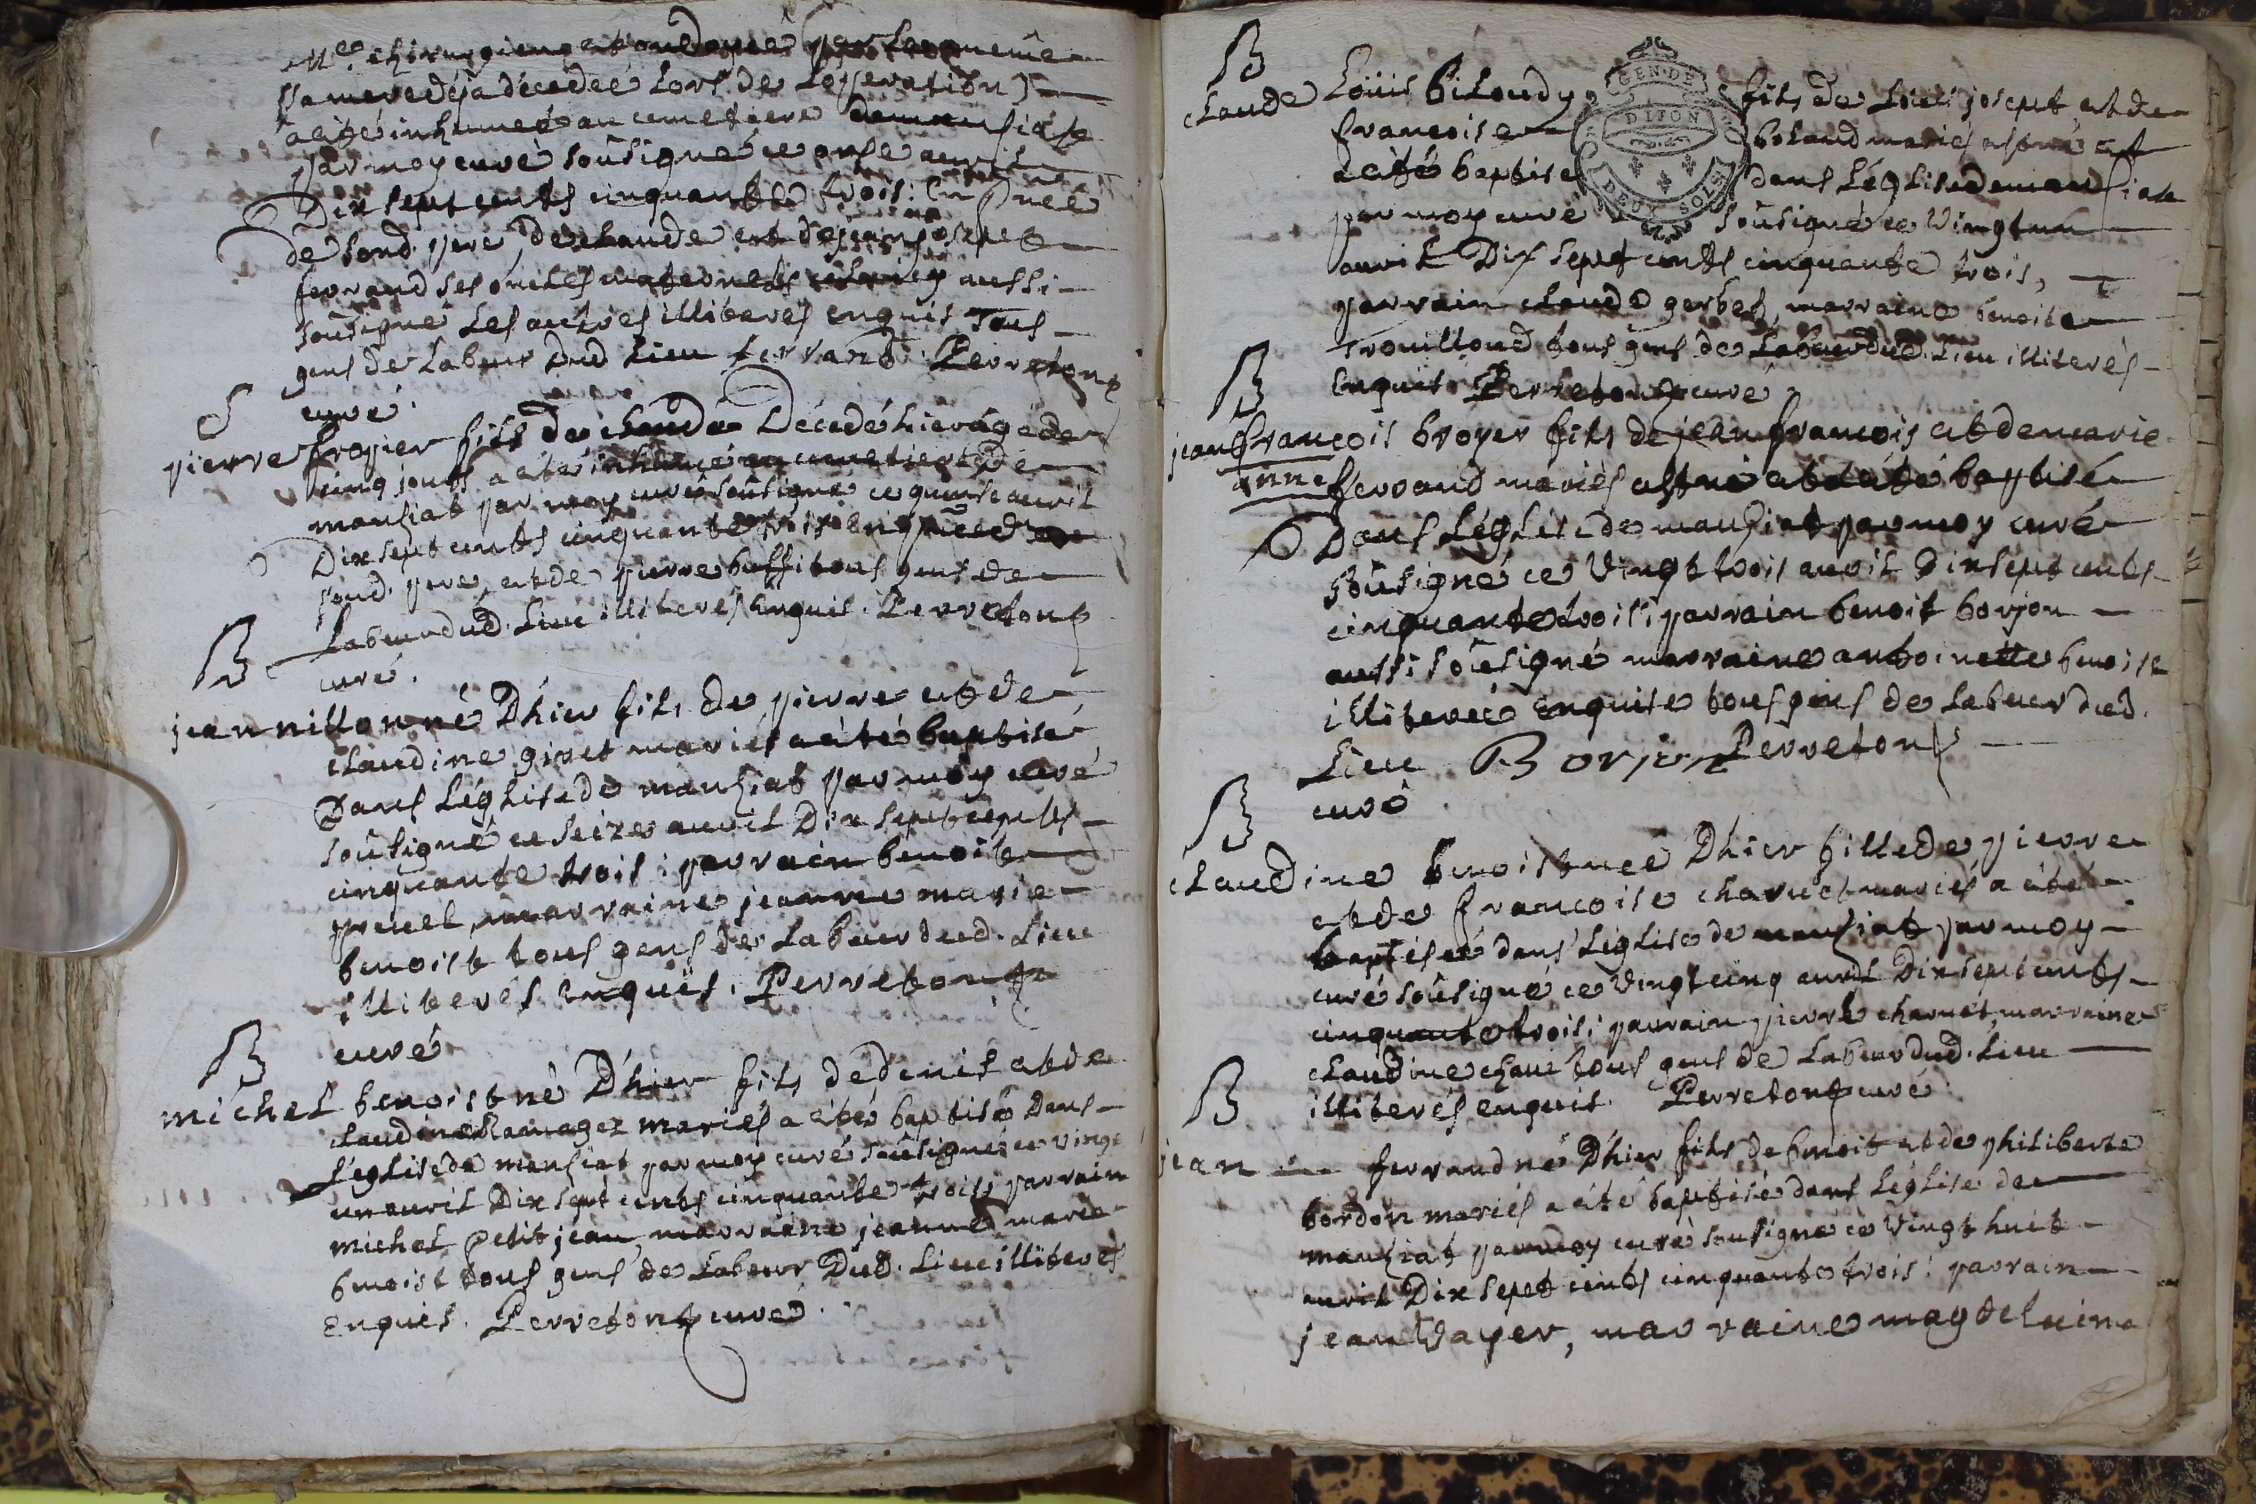 Me. chirurgien et ondoyée par le meme
sa mere deja décedée lors de l'opperation
a eté inhumée au cemetiere de manziat
par moy curé soûsigné ce onze avril
Dix sept cents cinquante trois: En pñce
de sond. pere, de claude et de jean joseph
ferrand ses oncles maternels aussi
soûsigné Les autres illiterés enquis Tous
gens de Labeur dud Lieu ferrand. Perreton
curé.
S
pierre froyier fils de claude Décedé hier agé de
cinq jours a eté inhumé au cemetiere de
manziat par moy curé soûsigné ce quinze avril
Dix sept cents cinquante trois En pñce de
sond. pere, et de pierre buffi tous gens de
Labeur dud. Lieu illiterés Enquis. Perreton
curé.
B
jean nillon né D'hier fils de pierre et de
claudine givet mariés a eté baptisé
Dans L'églisede manziat par moy curé
soûsigné ce seize avril Dix sept cents
cinquante trois: parrain benoit
pruel, marraine jeanne marie
benoist tous gens de Labeur dud. Lieu
illiterés Enquis. Perreton
curé
B
michel benoist né D'hier fils dedenis et de
claudine Ramagez mariés a eté baptisé Dans
L'églisede manziat par moy curé soûsigné ce vingt
un avril Dix sept cents cinquante trois, parrain
michel petit jean, marraine jeanne marie
benoist tous gens de Labeur Dud. Lieu illiterés
Enquis. Perreton curé.
B
claude Loüis biloudy fils de Loüis joseph et de
francoise boland mariés est né et
a eté baptisé dans L'église demanziat
par moy curé soûsigné ce vingt un
avril Dix sept cents cinquante trois,
parrain claude gerbes, marraine benoite
Trouilloud tous gens de Labeur dud. Lieu illiterés
Enquis Perreton curé
GEN. DE DIJON
DEUX SOLS
B
jean francois broyer fils de jean francois et de marie
anne ferrand mariés est né et a eté baptisé
Dans L'église de manziat par moy curé
soûsigné ce vingt trois avril Dix sept cents
cinquante trois: parrain benoit borjon
aussi soûsigné marraine antoinette benoist
illiterée Enquise tous gens de Labeur dud.
Lieu Borjon Perreton
curé
B
claudine benoist née D'hier fillede pierre
et de francoise charvet mariés a eté
baptisée dans L'église de manziat par moy
curé soûsigné ce vingt cinq avril Dix sept cents
cinquante trois: parrain pierre charvet, marraine
claudine tous gens de Labeur dud. Lieu
illiterés enquis. Perreton curé
B
jean ferrand né D'hier fils de benoit et de philiberte
bordon mariés a eté baptisé dans L'église de
manziat par moy curé soûsigné ce vingt huit
avril Dix sept cents cinquante trois: parrain
jean Vayer, marraine magdeleine